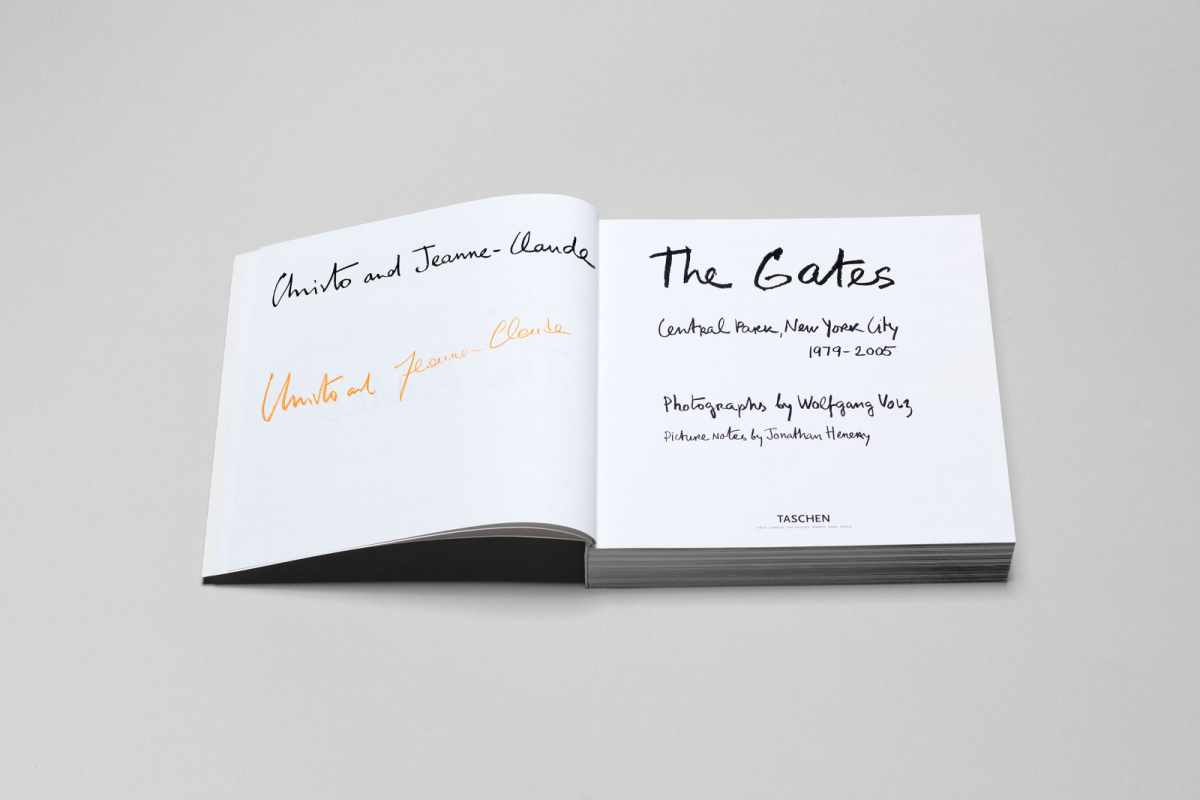 Christo and Jeanne-Claude
Christo and Jeanne-Claude
The Gates
Central Park, New York City
1979-2005
Photographs by Wolfgang Volz
Picture Notes by Jonathan Henery
TASCHEN